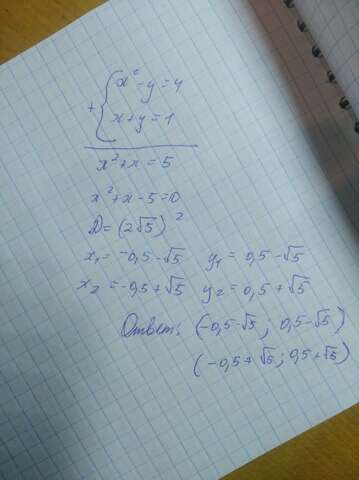 + { x² - y = 4
x + y = 1
x² + x = 5
x² + x - 5 = 0
D = (2√5)²
x₁ = -0,5 - √5 y₁ = 0,5 - √5
x₂ = -0,5 + √5 y₂ = 0,5 + √5
Ответ: (-0,5 - √5; 0,5 - √5)
(-0,5 + √5; 0,5 + √5)